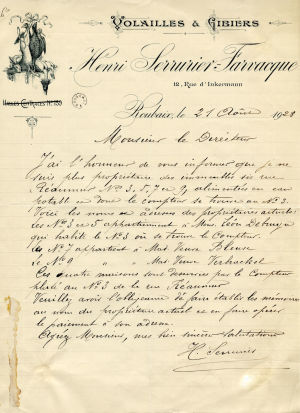 VOLAILLES & GIBIERS
Henri Serrurier-Farvacque
12, Rue d'Inkermann
HALLES CENTRALES
Roubaix, le 21 Août 1928
Monsieur le Directeur
J'ai l'honneur de vous informer que je ne
suis plus propriétaire des immeubles sis rue
Réaumur Nos 3, 5, 7 et 9 alimentées en eau
potable et dont le compteur se trouve au No 3.
Voici les noms et adresses des propriétaires actuels:
Les No 3 et 5 appartiennent à Mr Léon
qui habite le No 3 où se trouve le Compteur.
Le No 7 appartient à Mme Veuve
Le No 9 " " Mme Veuve
Ces quatre maisons sont desservies par le Compteur
établi au No 3 de la rue Réaumur
Veuillez avoir l'obligeance de faire établir les mémoires
au nom du propriétaire actuel et en faire opérer
le paiement à son adresse.
Agréez Monsieur, mes bien sincères salutations
H. Serrurier